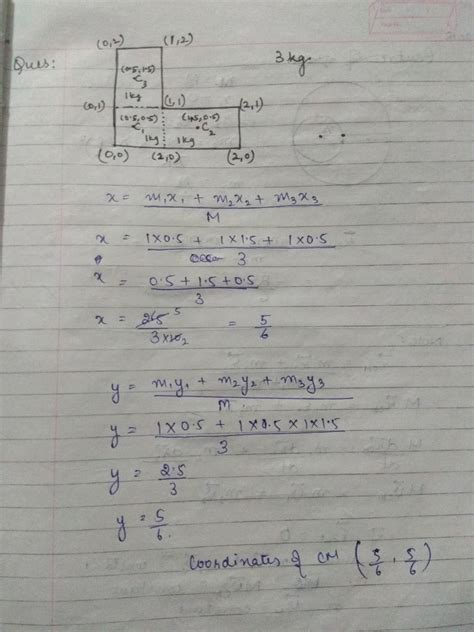 Ques:
(0,2) (1,2)
3kg
(0.5,1.5)
C3
1kg
(0,1) (1,1) (2,1)
(0.5,0.5) (1.5,0.5)
C1 C2
1kg 1kg
(0,0) (2,0) (2,0)
x = m₁x₁ + m₂x₂ + m₃x₃ / M
x = 1×0.5 + 1×1.5 + 1×0.5 / 3
x = 0.5 + 1.5 + 0.5 / 3
x = 25 5 / 3×10 2 = 5/6
y = m₁y₁ + m₂y₂ + m₃y₃ / M
y = 1×0.5 + 1×0.5 × 1×1.5 / 3
y = 2.5 / 3
y = 5/6.
Coordinates of CM (5/6, 5/6)